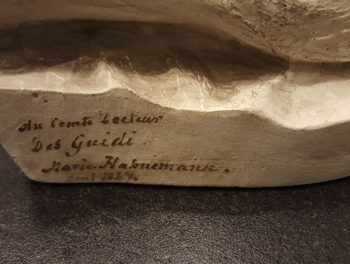 Au Comte Docteur
Des Guidi.
Marie Hahnemann.
1847.